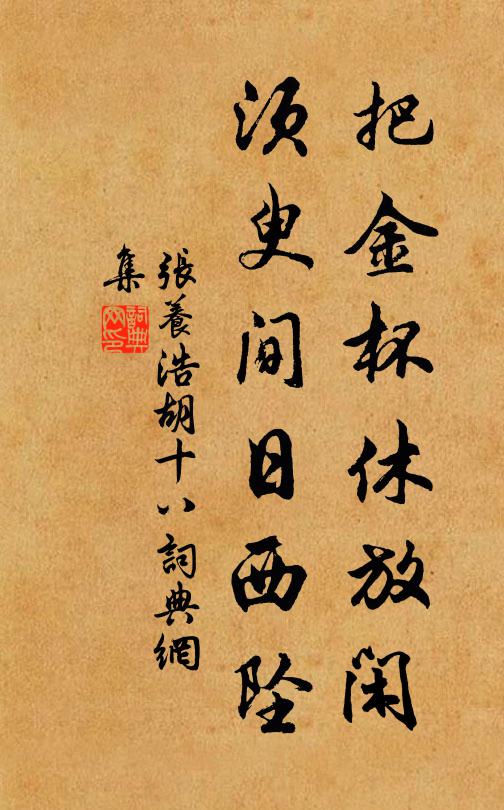 把金杯休放閑
須臾間日西墜
張養浩胡十八詞典網
集
詞典網印